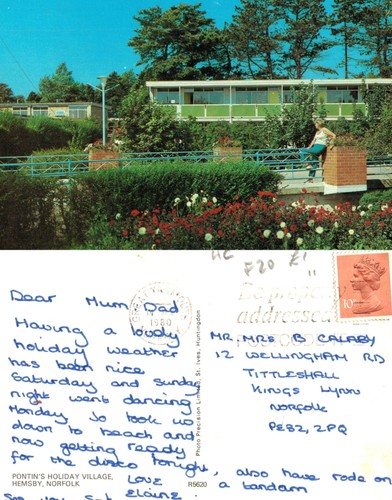 HC £20 £1
1980
Be properly
addressed
10
Dear Mum + Dad
Having a lovely
holiday weather
has been nice
Saturday and sunday
night went dancing
Monday Jo took us
down to beach and
now getting ready
for the disco tonight, also have rode on
Love a tandam
Elaine.
Photo Precision Limited, St. Ives, Huntingdon
MR, MRS B CALABY
12 WELLINGHAM RD
TITTLESHALL
KINGS LYNN
NORFOLK
PE32, 2PQ
PONTIN'S HOLIDAY VILLAGE,
HEMSBY, NORFOLK R5620
See you Sat